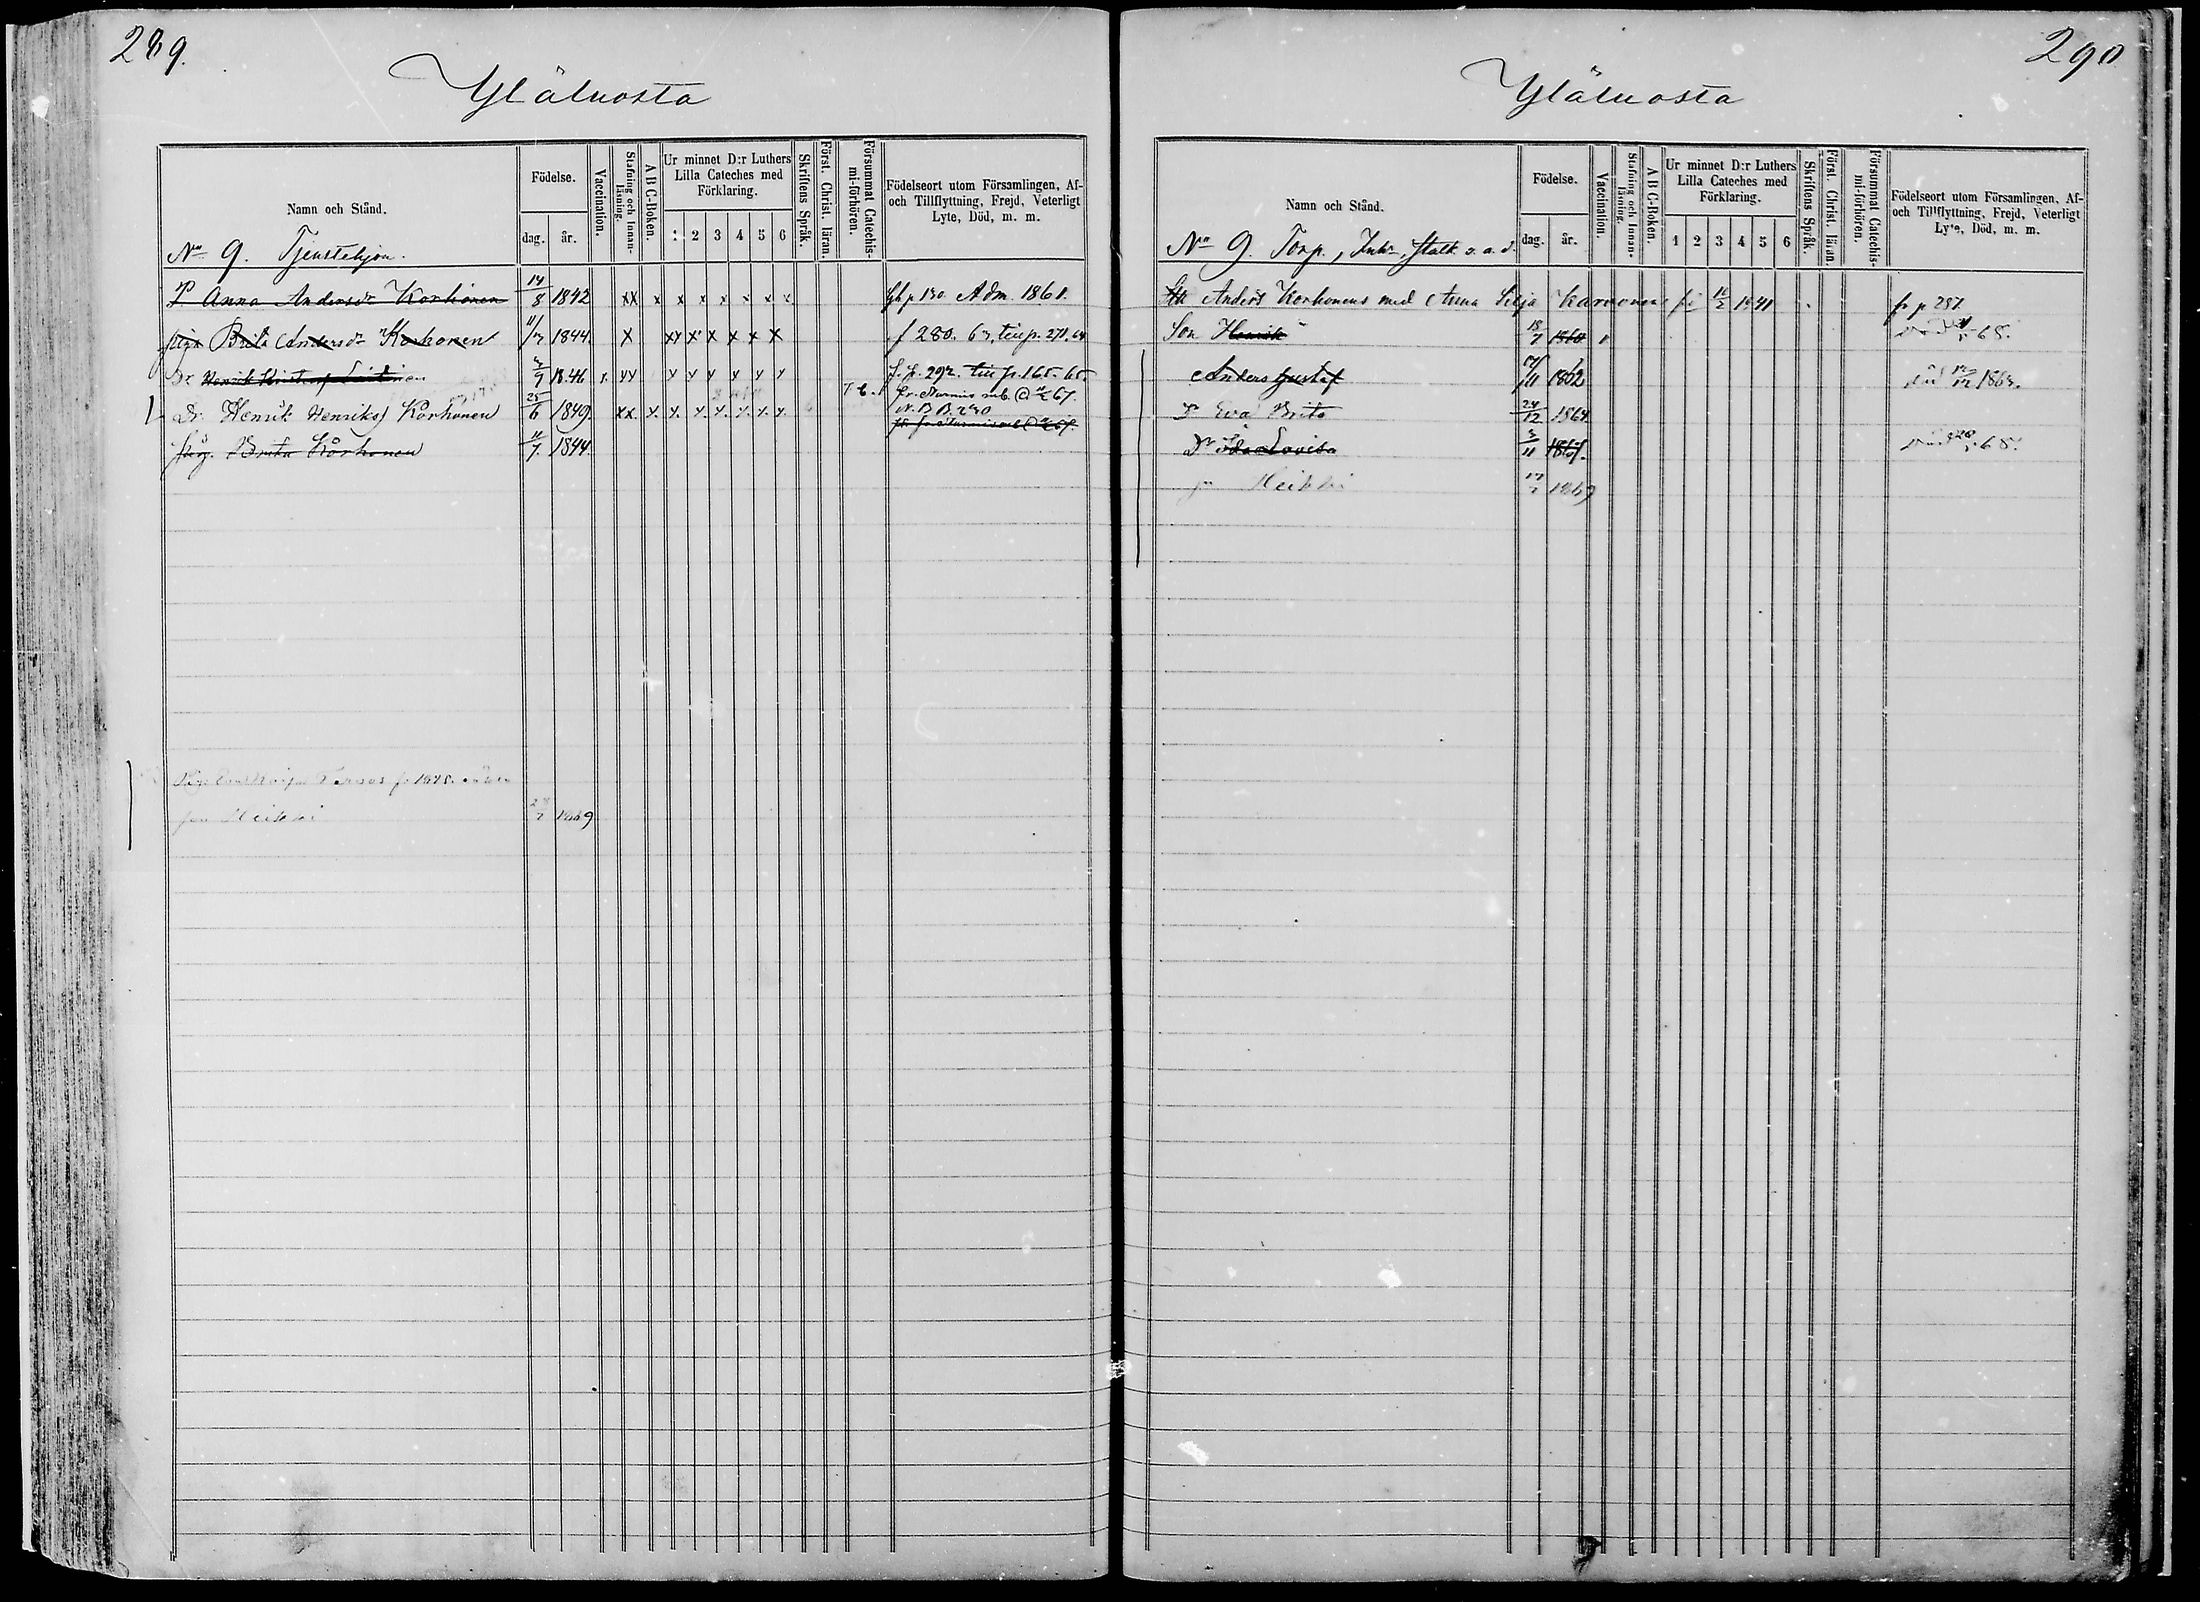 289.
Yläluosta
Namn och Stånd.
Födelse.
dag.
år.
Vaccination.
Stafning och Innan-läsning.
A B C-Boken.
Ur minnet D:r Luthers
Lilla Cateches med
Förklaring.
1 2 3 4 5 6
Skriftens Språk.
Först. Christ. läran.
Försummat Catechis-mi-förhören.
Födelseort utom Församlingen, Af-
och Tillflyttning, Frejd, Veterligt
Lyte, Död, m. m.
No 9. Tjenstehjon.
P Anna Andersdr Korhonen 14/8 1842 xx x x x x x x x Adm. 1861.
Brita Andersdr Korhonen 11/7 1844 x xx x x x x x f 280. 63, till p. 271. 64
Dr Henrik 3/9 1846 x. xx x x x x x x f. p. 292. till p. 165. 65.
Dr. Henrik Henrikss Korhonen 25/6 1849. xx. x. x. x. x. x. x. x. fr. Nurmis 67.
Brita Korhonen 11/7. 1844.
Heikki 1869
290
Yläluosta
Namn och Stånd.
Födelse.
dag.
år.
Vaccination.
Stafning och Innan-läsning.
A B C-Boken.
Ur minnet D:r Luthers
Lilla Cateches med
Förklaring.
1 2 3 4 5 6
Skriftens Språk.
Först. Christ. läran.
Försummat Catechis-mi-förhören.
Födelseort utom Församlingen, Af-
och Tillflyttning, Frejd, Veterligt
Lyte, Död, m. m.
No 9. Torp., Inh., Statk. o. a. d.
Anders Korhonens med Anna Silja Karvonen 1841 fr p 287.
Son Henrik 18/7 1860 68.
Anders Gustaf 1862 död 1863.
Dr Eva Brita 24/12 1864.
Dr Ida Lovisa 3/11 1867. 68.
Heikki 1869